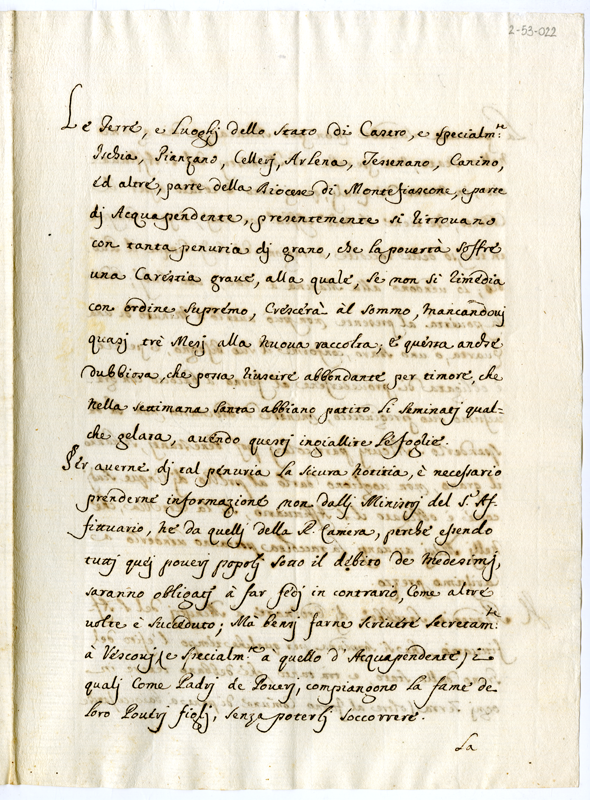 2-53-022
Le Terre, e Luoghj dello Stato di Castro, e specialm.te
Ischia, Pianzano, Cellerj, Arlena, Tessenano, Canino,
ed altre, parte della Diocese di Montefiascone, e parte
dj Acquapendente, presentemente si ritrovano
con tanta penuria dj grano, che la povertà soffre
una Carestia grave, alla quale, se non si rimedia
con ordine supremo, Crescerà àl sommo, mancandovj
quasj trè Mesj alla nuova raccolta; E questa anche
dubbiosa, che possa riuscire abbondante per timore, che
nella settimana Santa abbiano patito li seminatj qual=
che gelata, avendo questj ingiallire le foglie.
Per averne dj tal penuria la sicura notitia, è necessario
prenderne informazione non dallj Ministrj del S.r Af-
fittuario, nè da quellj della R. Camera, perche essendo
tuttj quej poverj popolj sotto il debito de Medesimj,
saranno obligatj à far fedj in contrario, Come altre
volte è succeduto; Mà bensj farne scrivere secretam.te
à Vescovj (e specialm.te à quello d'Acquapendente) i
qualj Come Padrj de Poverj, compiangono la fame de
loro Poverj figlj, senza poterlj soccorrere.
La